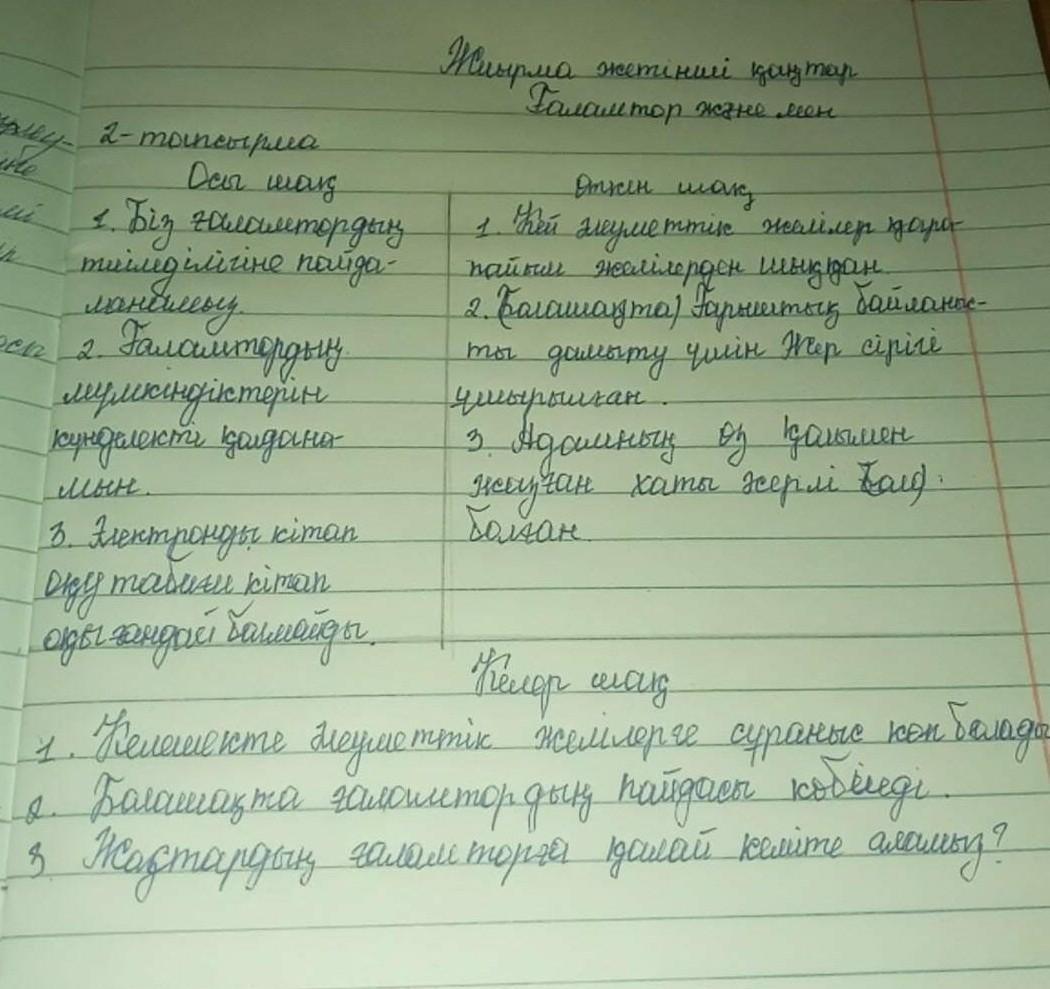 Жиырма жетінші қаңтар
Ғаламтор және мен
2-тапсырма
Осы шақ
1. Біз ғаламтордың
тиімділігіне пайда-
ланамыз.
2. Ғаламтордың
мүмкіндіктерін
күнделекті қолдана-
мын.
3. Электронды кітап
оқу табиғи кітап
оқығандай болмайды.
Өткен шақ
1. Кей әлеуметтік желілер қара-
пайым желілерден шыққан.
2. (Болашақта) Ғарыштық байланыс-
ты дамыту үшін Жер сірігі
ұшырылған.
3. Адамның өз қолымен
жазған хаты әсерлі
болған.
Келер шақ
1. Келешекте әлеуметтік желілерге сұраныс көп болады
2. Болашақта ғаламтордың пайдасы көбейеді.
3 Жастардың ғаламторға қалай аламыз?